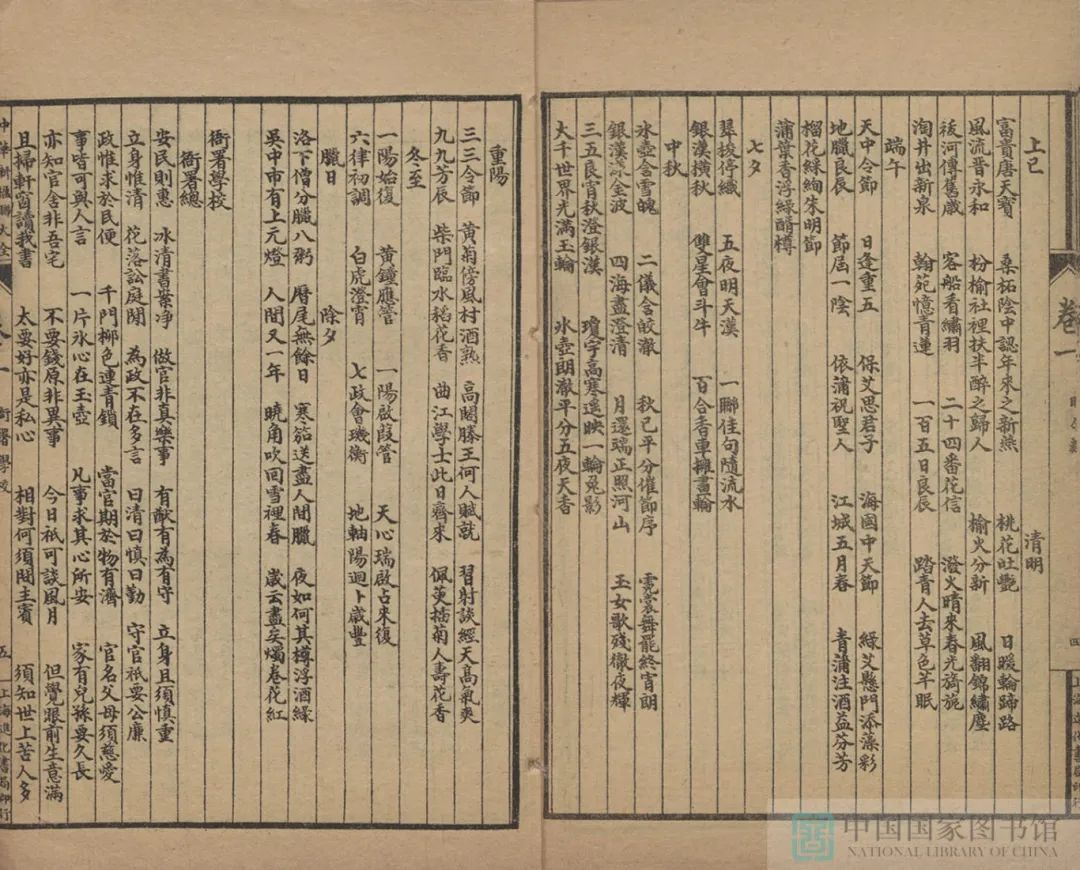 上巳
富貴唐天寶 桑柘陰中認年來之新燕 桃花吐艷 日暖輪蹄路
風流晉永和 枌榆社裡扶半醉之歸人 榆火分新 風翻錦繡塵
清明
祓河傳舊歲 客船看繡羽 二十四番花信 潑火晴來春光旖旎
淘井出新泉 翰苑憶青蓮 一百五日良辰 踏青人去草色芊眠
端午
天中令節 日逢重五 保艾思君子 海國中天節 綠艾懸門添藻彩
地臘良辰 節屆一陰 依蒲祝聖人 江城五月春 青蒲注酒益芬芳
榴花綵絢朱明節
蒲葉香浮綠醑樽
七夕
翠梭停織 五夜明天漢 一聯佳句隨流水
銀漢橫秋 雙星會斗牛 百合香車擁畫輪
中秋
氷壺含雪魄 二儀含皎澈 秋已平分催節序 霓裳舞罷終宵朗
銀漢漾金波 四海盡澄清 月還端正照河山 玉女歌殘徹夜輝
三五良宵秋澄銀漢 瓊宇高寒遥映一輪兔影
大千世界光滿玉輪 氷壺朗澈平分五夜天香
卷一
四
重陽
三三令節 黃菊傍風村酒熟 高閣滕王何人賦就 習射談經天高氣爽
九九芳辰 柴門臨水稻花香 曲江學士此日齊來 佩萸插菊人壽花香
冬至
一陽始復 黃鐘應管 一陽啟葭管 天心瑞啟占來復
六律初調 白虎澄宵 七政會璣衡 地軸陽迴卜歲豐
臘日
除夕
洛下僧分臘八粥 曆尾無餘日 寒笳送盡人間臘 夜如何其樽浮酒綠
吳中市有上元燈 人間又一年 曉角吹回雪裡春 歲云盡矣燭卷花紅
衙署學校
衙署總
安民則惠 冰清書案净 做官非真樂事 有猷有為有守 立身且須慎重
立身惟清 花落訟庭閒 為政不在多言 曰清曰慎曰勤 守官祇要公廉
政惟求於民便 千門柳色連青鎖 當官期於物有濟 官名父母須慈愛
事皆可與人言 一片氷心在玉壺 凡事求其心所安 家有兒孫要久長
亦知官舍非吾宅 不要錢原非異事 今日祇可談風月 但覺眼前生意滿
且掃軒窗讀我書 太要好亦是私心 相對何須問主賓 須知世上苦人多
五
中国国家图书馆
NATIONAL LIBRARY OF CHINA